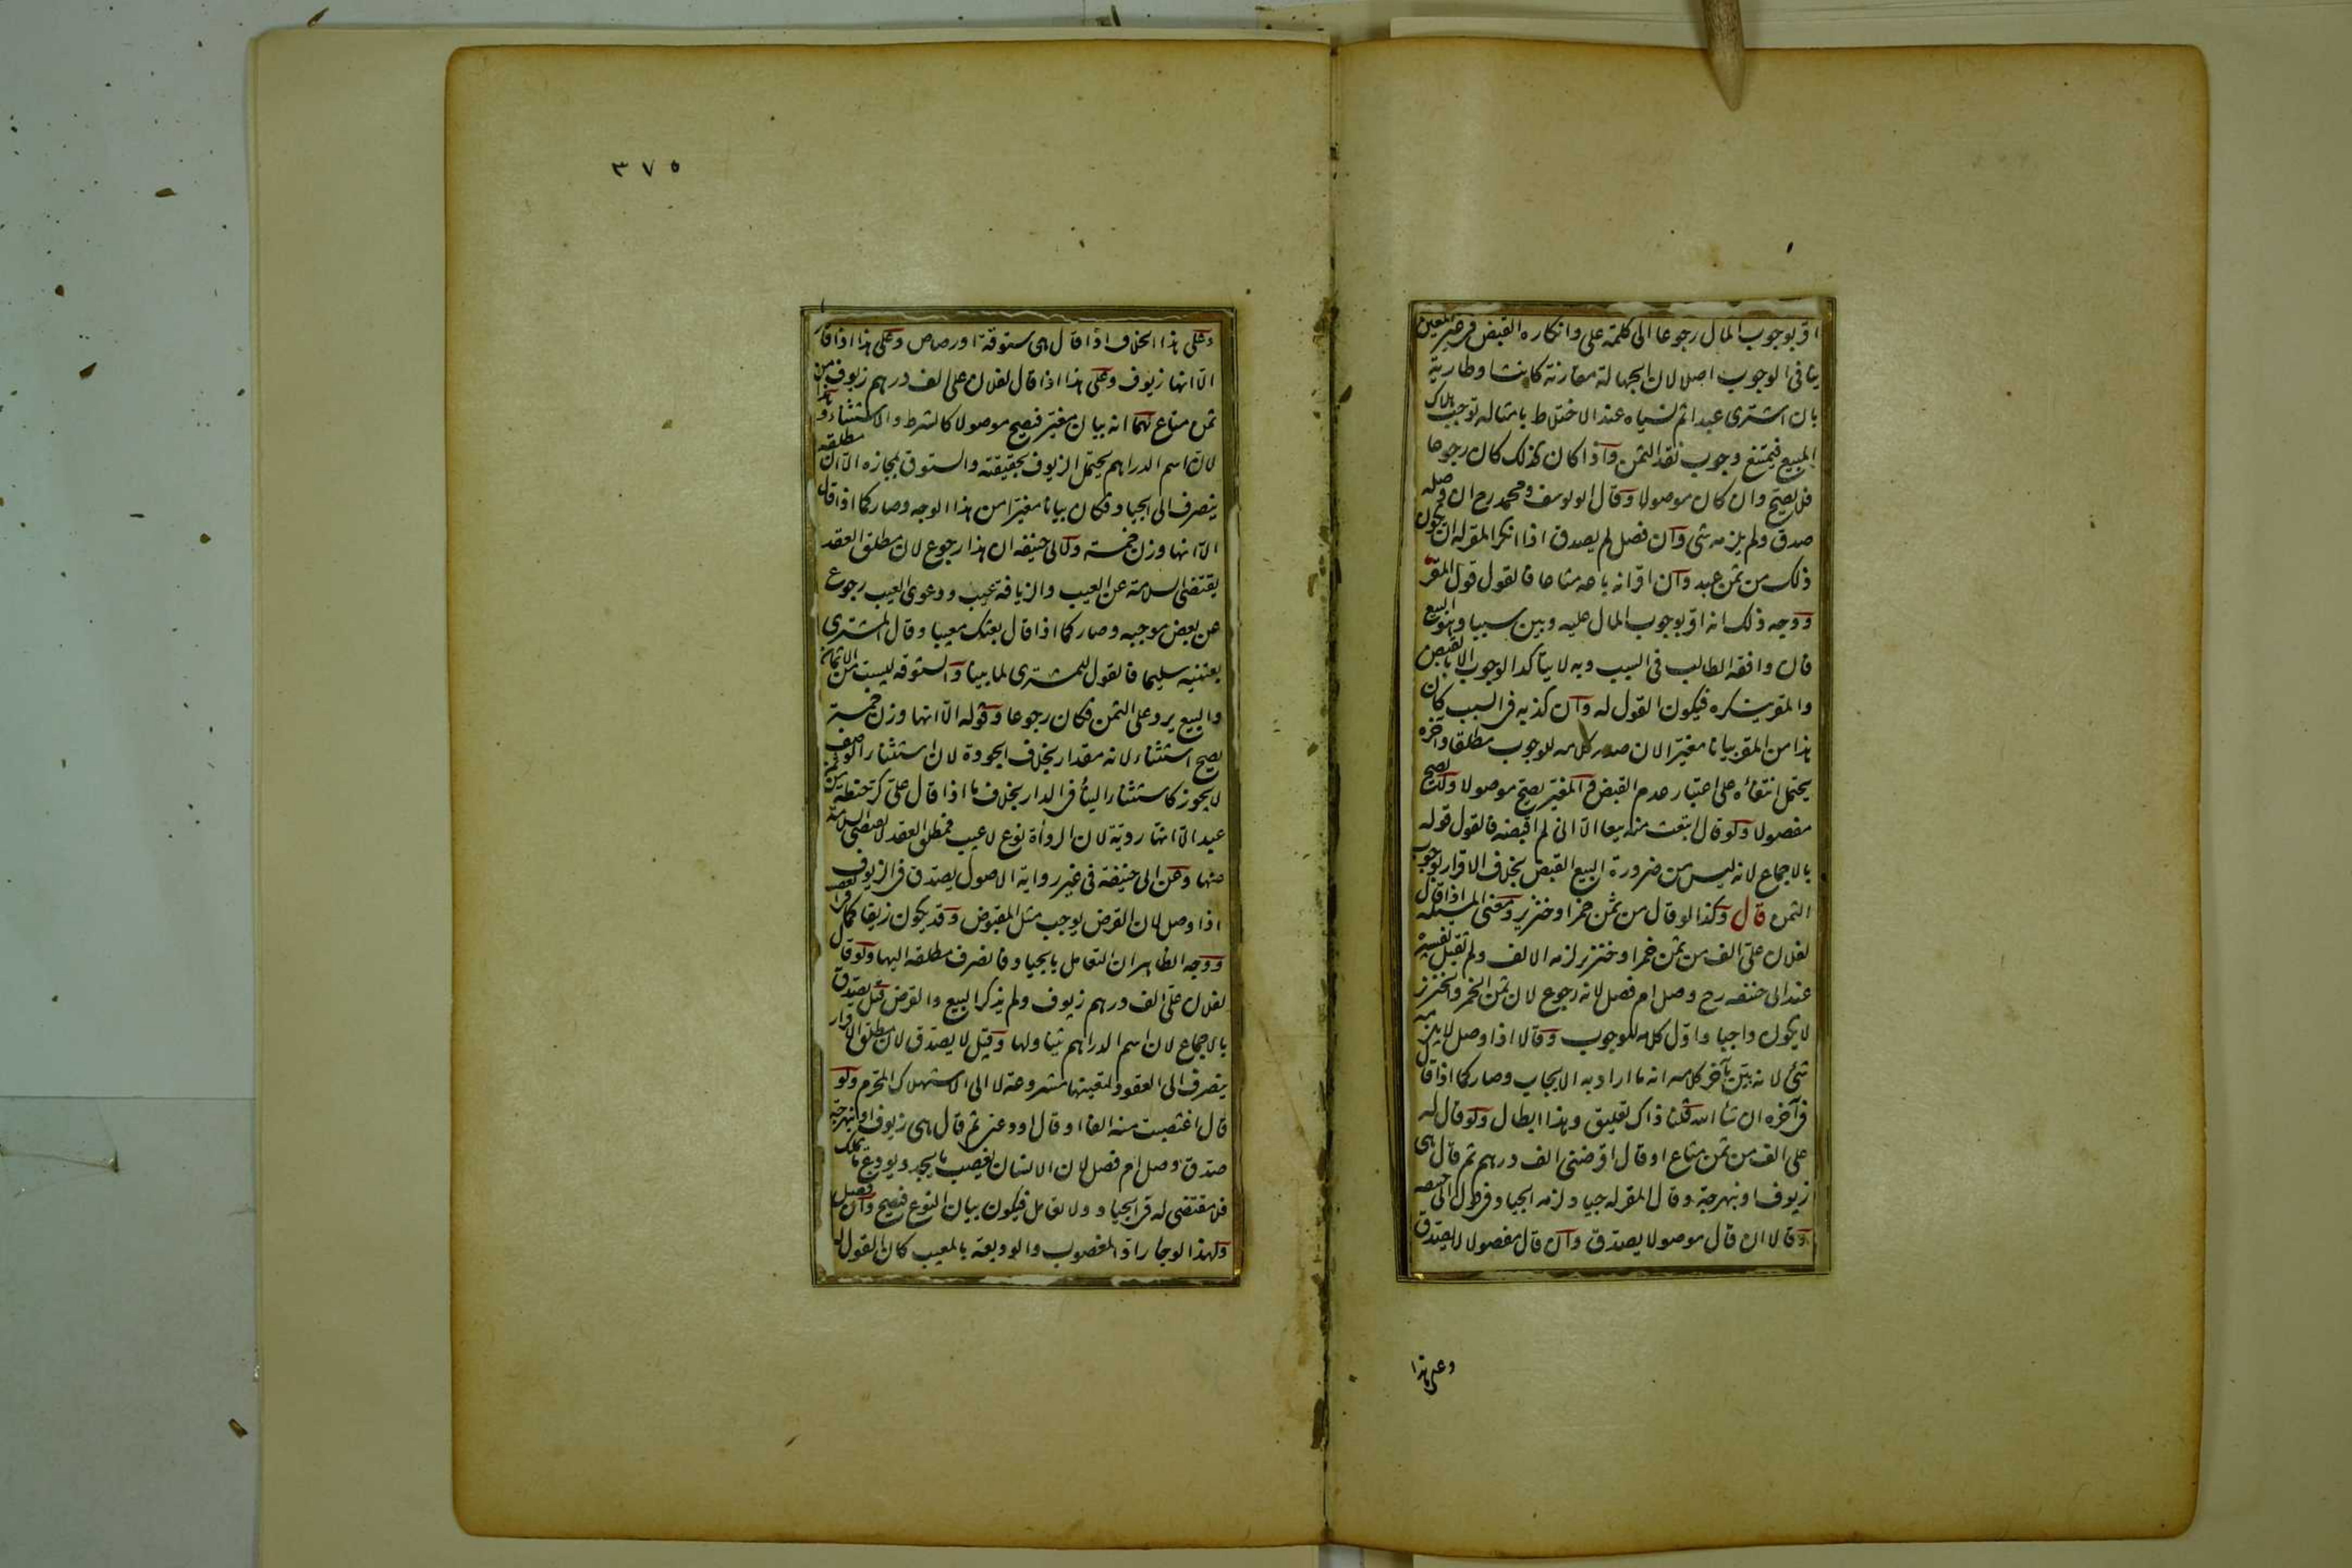 اقر بوجوب المال رجوعا الى كلمة على وانكاره القبض فى غير المعين
ينافى الوجوب اصلا لان الجهالة مقارنة كانت او طارية
بان اشترى عبدا ثم نسياه عند الاختلاط بامثاله توجب هلاك
المبيع فيمتنع وجوب نقد الثمن واذا كان كذلك كان رجوعا
فلا يصح وان كان موصولا وقال ابو يوسف ومحمد رح ان وصل
صدق ولم يلزمه شى وان فصل لم يصدق اذا انكر المقر له ان يكون
ذلك من ثمن عبد وان اقر انه باعه متاعا فالقول قول المقر
ووجه ذلك انه اقر بوجوب المال عليه وبين سببا وهو البيع
فان وافقه الطالب فى السبب وبه لا يتأكد الوجوب الا بالقبض
والمقر ينكره فيكون القول له وان كذبه فى السبب كان
هذا من المقر بيانا مغيرا لان صدر كلامه للوجوب مطلقا وآخره
يحتمل انتفاءه على اعتبار عدم القبض والمغير يصح موصولا ولا يصح
مفصولا ولو قال ابتعت منه بيعا الا انى لم اقبضه فالقول قوله
بالاجماع لانه ليس من ضرورة البيع القبض بخلاف الاقرار بوجوب
الثمن قال وكذا لو قال من ثمن خمر او خنزير ومعنى المسئلة اذا قال
لفلان على الف من ثمن خمر او خنزير لزمه الالف ولم يقبل تفسيره
عند ابى حنيفه رح وصل ام فصل لانه رجوع لان ثمن الخمر والخنزير
لا يكون واجبا واول كلامه للوجوب وقالا اذا وصل لا يلزمه
شئ لانه بين بآخر كلامه انه ما اراد به الايجاب وصار كما اذا قال
فى آخره ان شاء الله قلنا ذاك تعليق وهذا ابطال ولو قال له
على الف من ثمن متاع او قال اقرضنى الف درهم ثم قال هى
زيوف او نبهرجة وقال المقر له جياد لزمه الجياد فى قول ابى حنيفه
وقالا ان قال موصولا يصدق وان قال مفصولا لا يصدق
وعلى هذا
٣٧٥
وعلى هذا الخلاف اذا قال هى ستوقة او رصاص وعلى هذا اذا قال
الا انها زيوف وعلى هذا اذا قال لفلان على الف درهم زيوف من
ثمن متاع لهما انه بيان مغير فيصح موصولا كالشرط والاستثناء وهذا
لان اسم الدراهم يحتمل الزيوف بحقيقته والستوق بمجازه الا ان مطلقه
ينصرف الى الجياد فكان بيانا مغيرا من هذا الوجه وصار كما اذا قال
الا انها وزن خمسة ولابى حنيفه ان هذا رجوع لان مطلق العقد
يقتضى السلامة عن العيب والزيافة عيب ودعوى العيب رجوع
عن بعض موجبه وصار كما اذا قال بعتك معيبا وقال المشترى
بعتنيه سليما فالقول للمشترى لما بينا والستوقه ليست من الاثمان
والبيع يرد على الثمن فكان رجوعا وقوله الا انها وزن خمسة
يصح استثناء لانه مقدار بخلاف الجودة لان استثناء الوصف
لا يجوز كاستثناء البناء فى الدار بخلاف ما اذا قال على كر حنطة من ثمن
عبد الا انها ردية لان الرداءة نوع لا عيب فمطلق العقد لا يقتضى السلامة
عنها وعن ابى حنيفة فى غير رواية الاصول يصدق فى الزيوف
اذا وصل لان القرض يوجب مثل المقبوض وقد يكون زيفا كما فى الغصب
ووجه الظاهر ان التعامل بالجياد فانصرف مطلقه اليها ولو قال
لفلان على الف درهم زيوف ولم يذكر البيع والقرض قيل يصدق
بالاجماع لان اسم الدراهم يتناولها وقيل لا يصدق لان مطلق الاقرار
ينصرف الى العقود لتعينها مشروعة لا الى الاستهلاك المحرم ولو
قال اغتصبت منه الفا او قال اودعنى ثم قال هى زيوف او نبهرجة
صدق وصل ام فصل لان الانسان يغصب ما يجد ويودع ما يملك
فلا مقتضى له فى الجياد ولا تعامل فيكون بيان النوع فيصح وان فصل
ولهذا لو جاء راد المغصوب والوديعة بالمعيب كان القول له